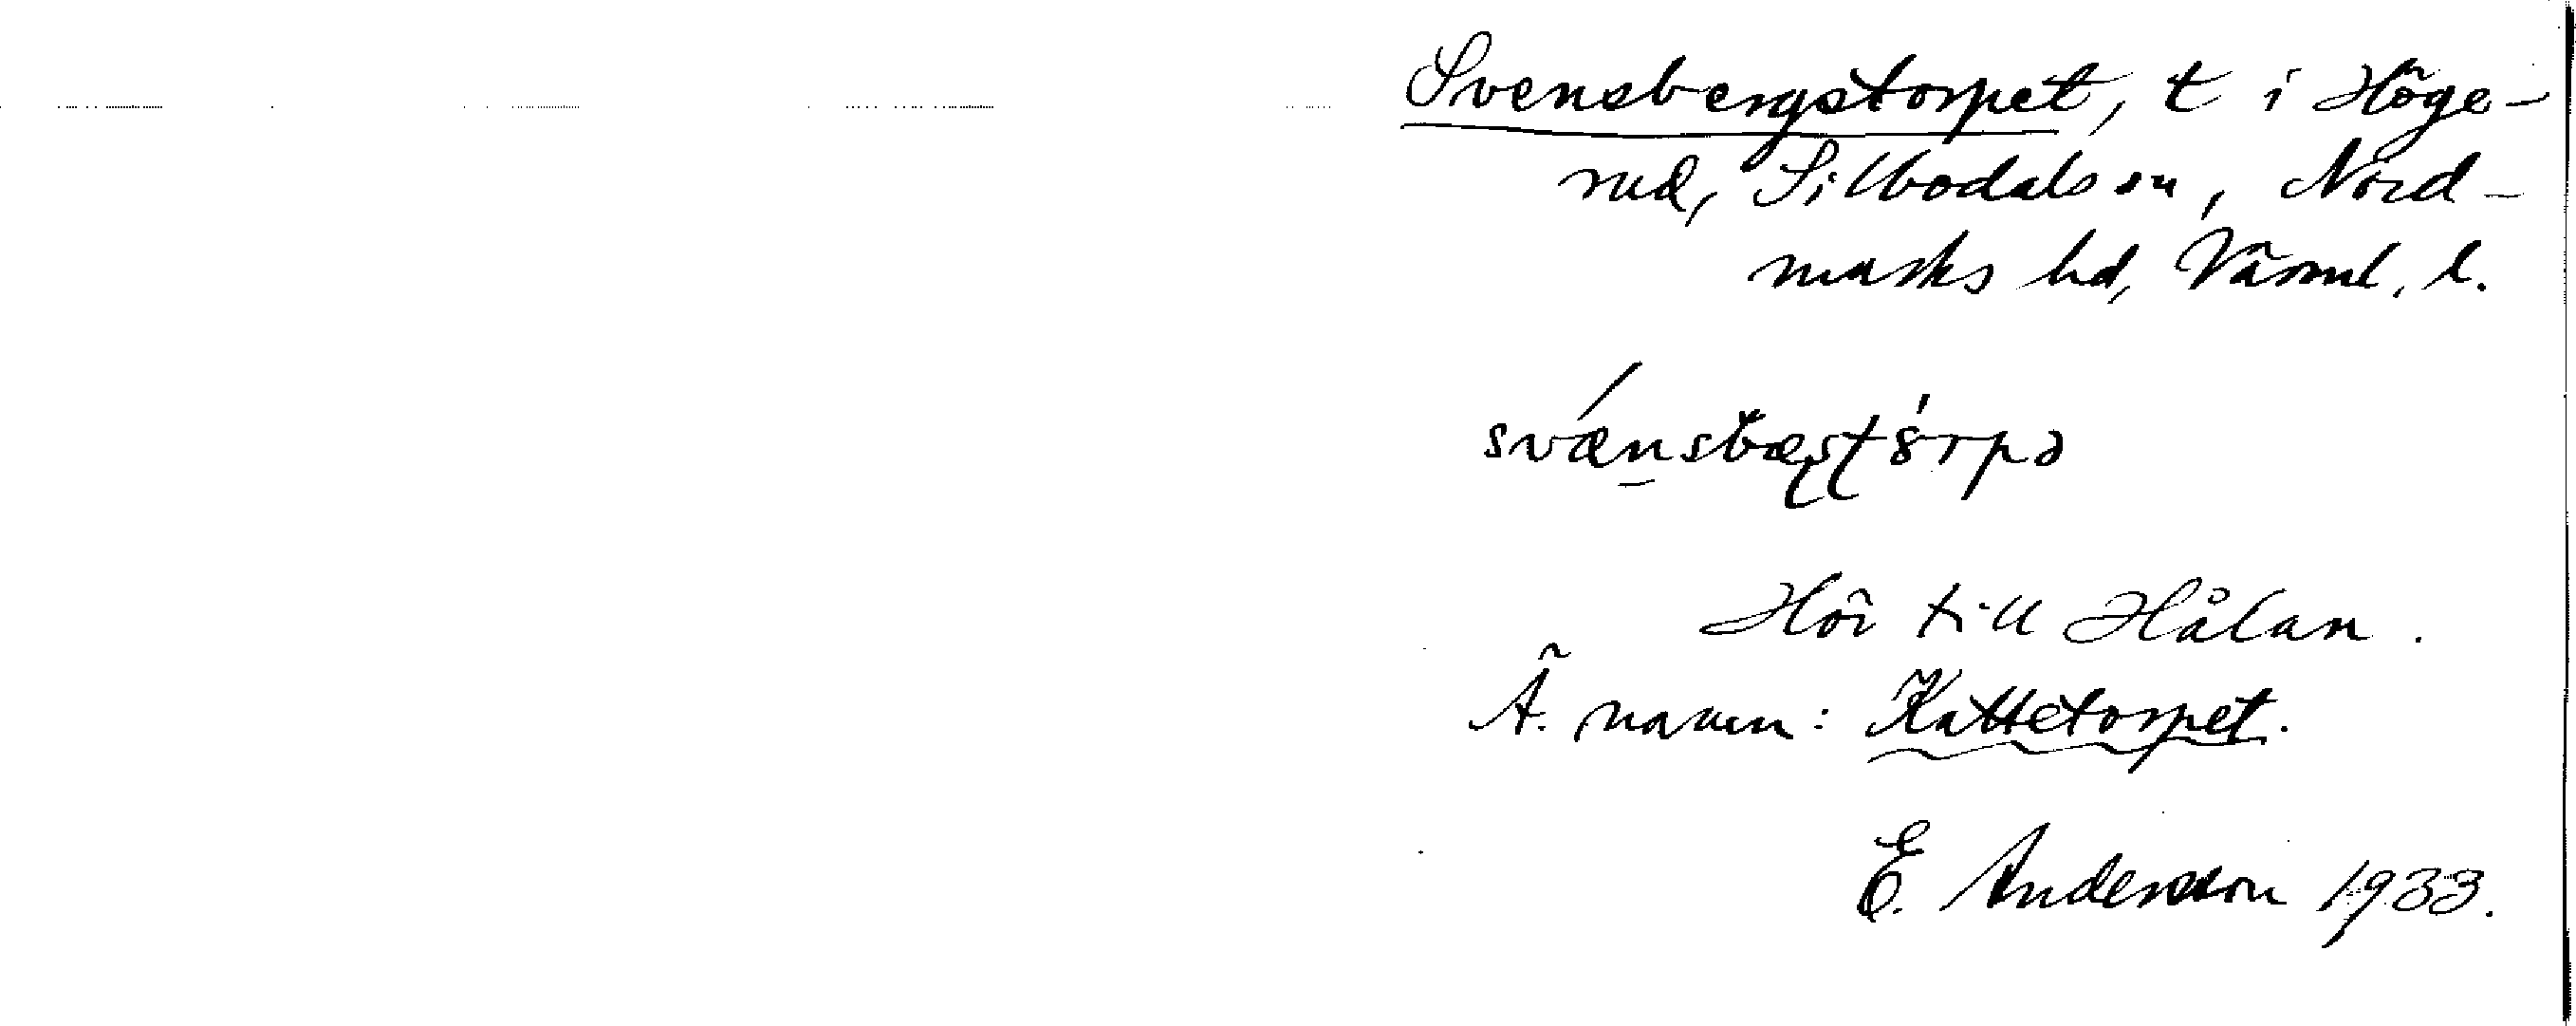 Svensbergstorpet, t i Höge-
rud, Silbodals sn, Nord-
marks hd, Värml. l.
Hör till Hålan.
Ä. namn: Kattetorpet.
E. Andersson 1933.